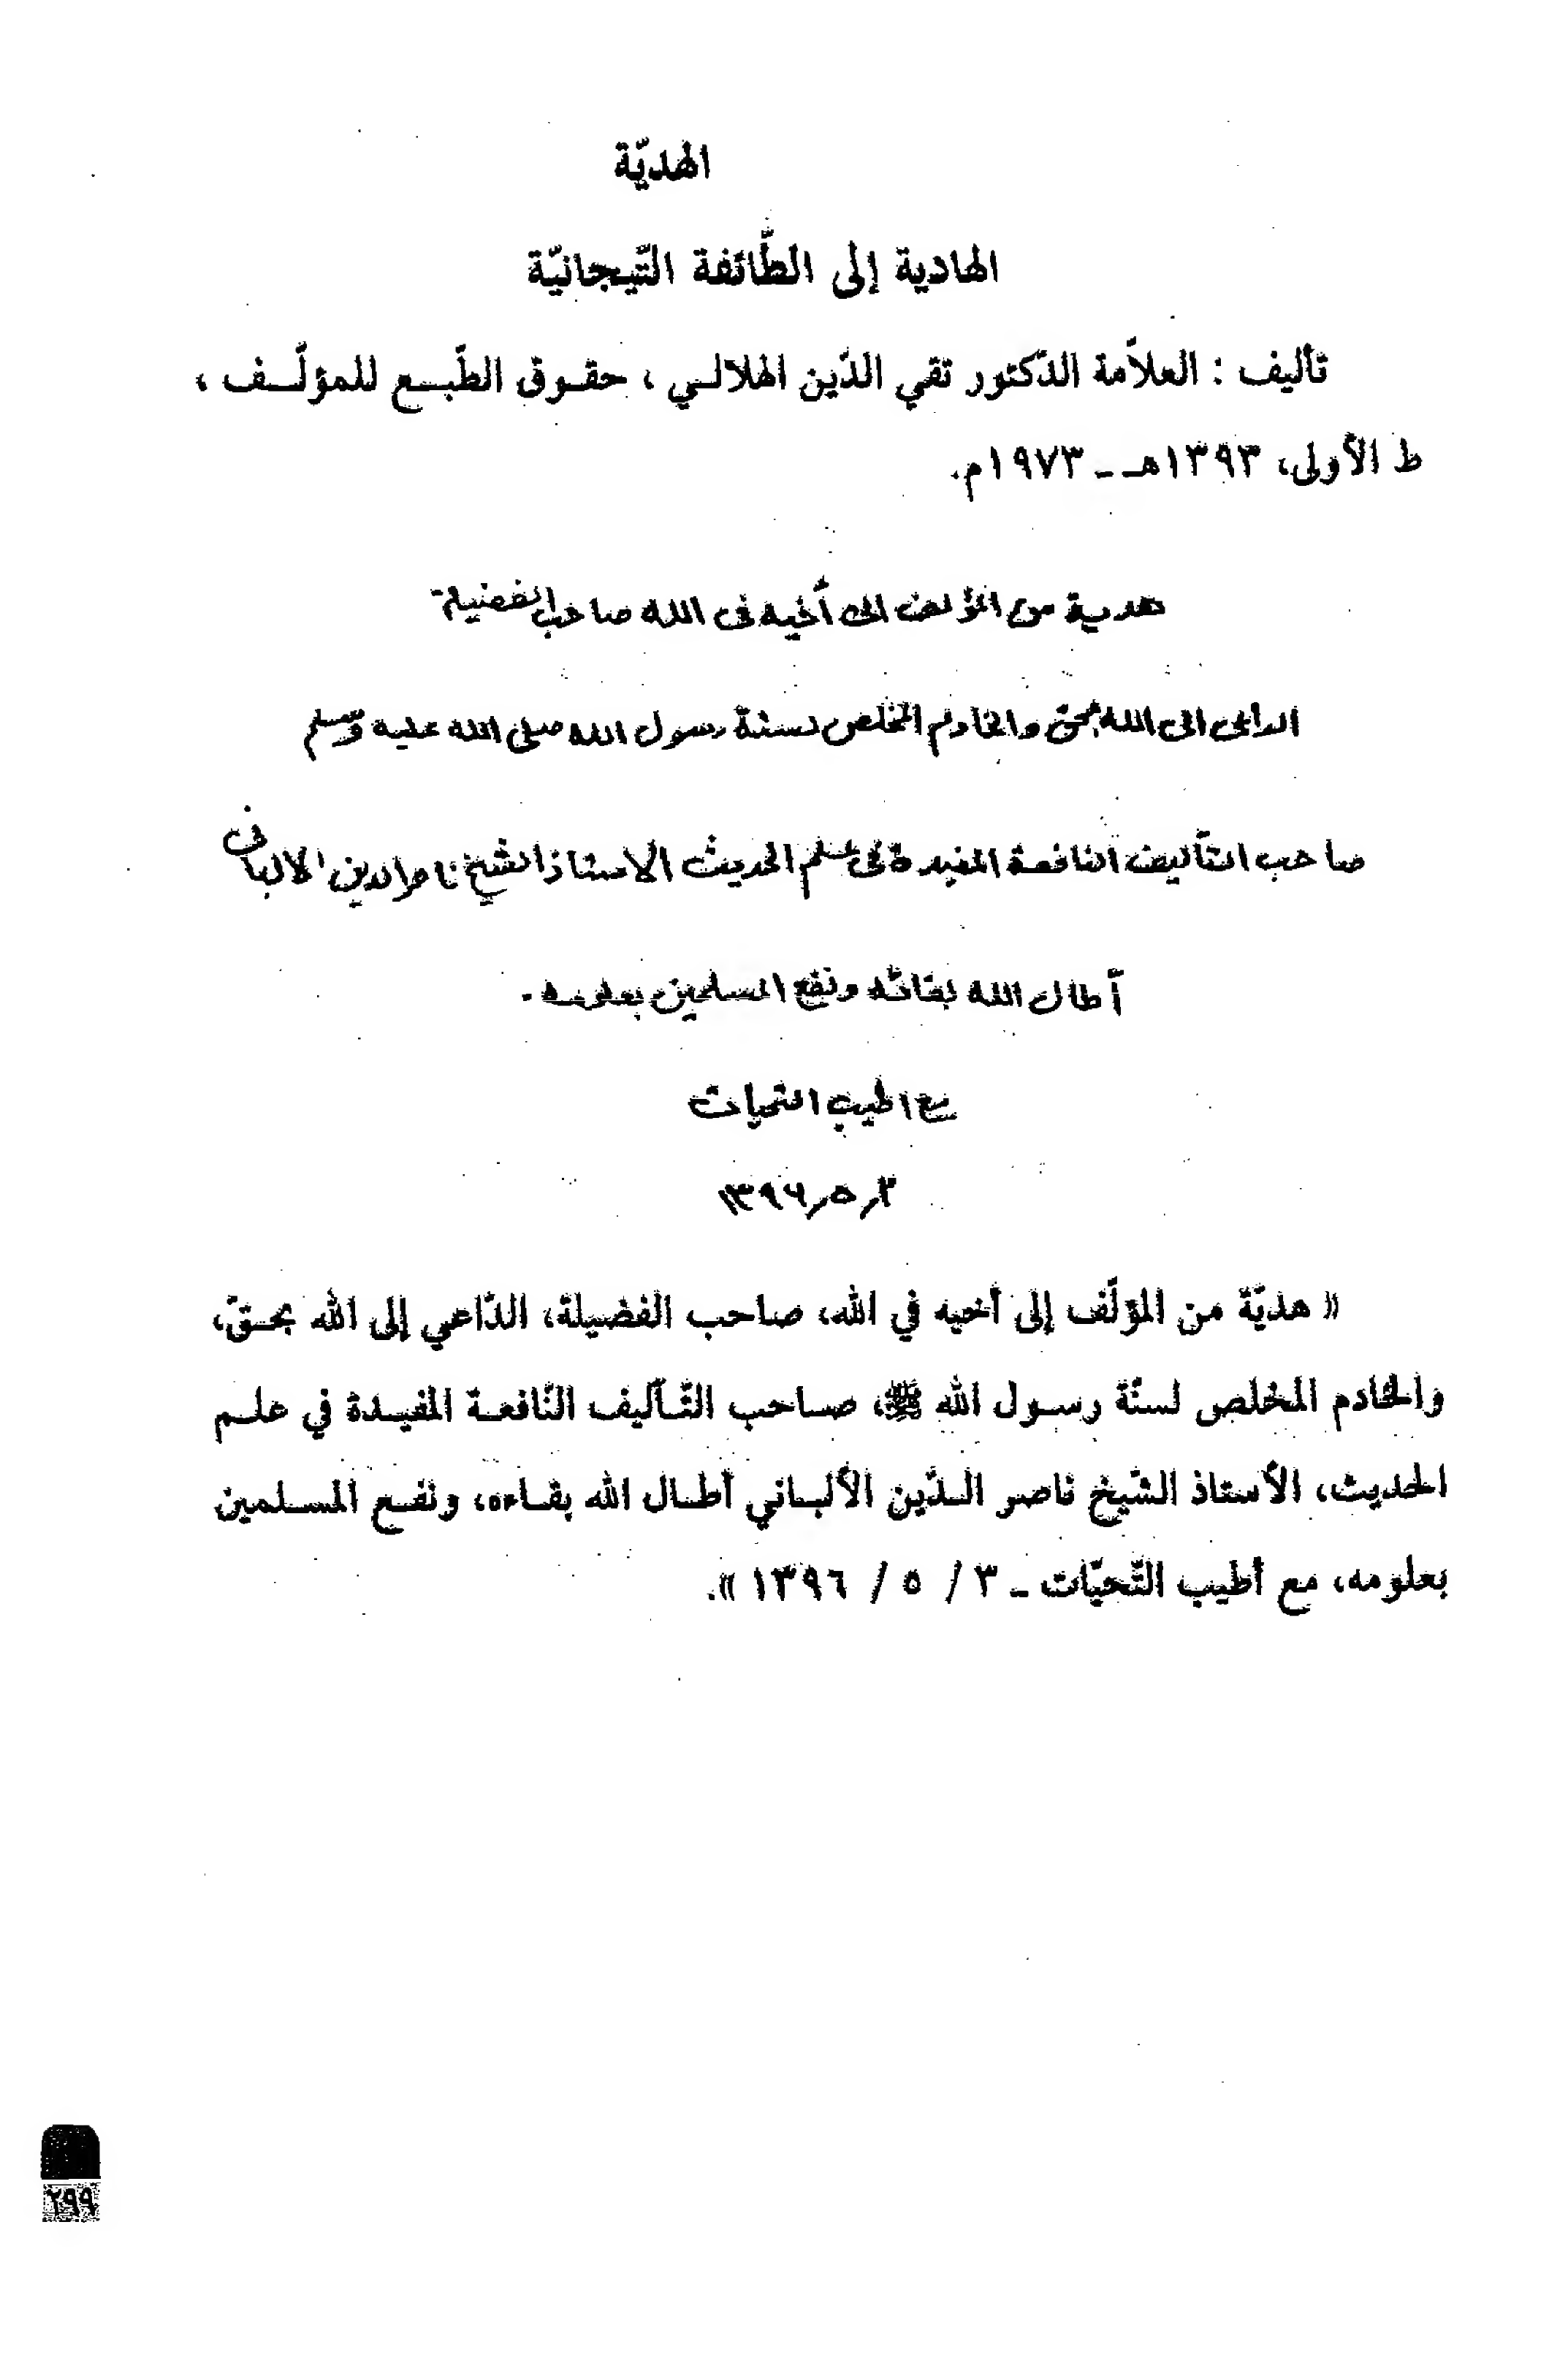 الهديّة
الهادية إلى الطّائفة التّيجانيّة
تأليف : العلاّمة الدّكتور تقي الدّين الهلالـي ، حقـوق الطّبـع للمؤلّـف ،
ط الأولى، ١٣٩٣هـ ـ ١٩٧٣م.
هدية من المؤلف الى أخيه فى الله صاحب الفضيلة
الداعى الى الله بحق والخادم المخلص لسنة رسول الله صلى الله عليه وسلم
صاحب التآليف النافعة المفيدة فى علم الحديث الاستاذ الشيخ ناصر الدين الالبانى
أطال الله بقائه ونفع المسلمين بعلومه .
مع اطيب التحيات
٣ر٥ر١٣٩٦
« هديّة من المؤلّف إلى أخيه في الله، صاحب الفضيلة، الدّاعي إلى الله بحـقّ،
والخادم المخلص لسنّة رسـول الله ﷺ، صـاحب التّـآليف النّافعـة المفيـدة في علـم
الحديث، الأستاذ الشّيخ ناصر الـدّين الألبـاني أطـال الله بقـاءه، ونفـع المسـلمين
بعلومه، مع أطيب التّحيّات ـ ٣ / ٥ / ١٣٩٦ ».
٢٩٩